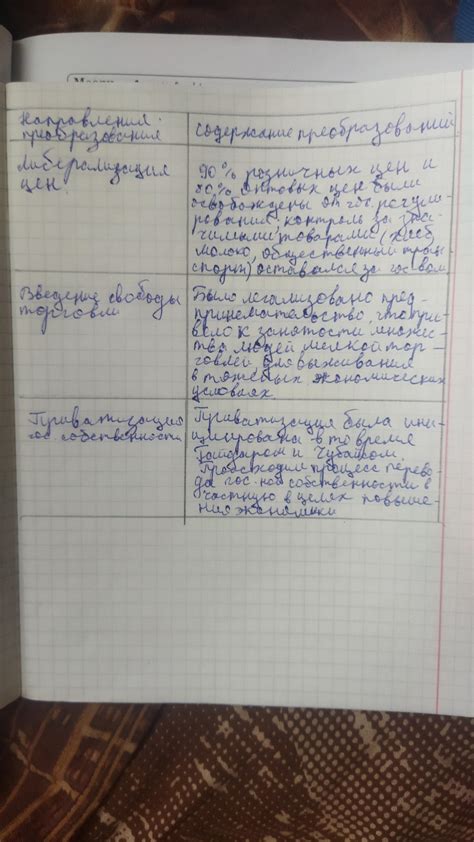 Направления
преобразования
Содержание преобразований
Либерализация
цен
90% розничных цен и
80% оптовых цен были
освобождены от гос. регули-
рования контроль за
товарами (хлеб
молоко, общественный тран-
спорт) оставался за гос-вом
Введение свободы
торговли
Было легализовано пред-
принимательство, что при-
вело к занятости множес-
тва людей мелкой тор-
говлей для выживания
в тяжелых экономических
условиях.
Приватизация
гос. собственности
Приватизация была ини-
циирована в то время
Гайдаром и Чубайсом.
Происходил процесс перево-
да гос-ной собственности в
частную в целях повыше-
ния экономики